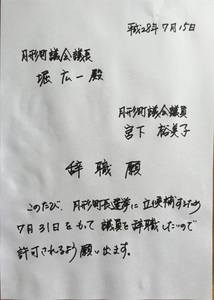 平成28年7月15日
月形町議会議長
堀 広一 殿
月形町議会議員
宮下 裕美子
辞職願
このたび、月形町長選挙に立候補するため
7月31日をもって議員を辞職したいので
許可されるよう願い出ます。